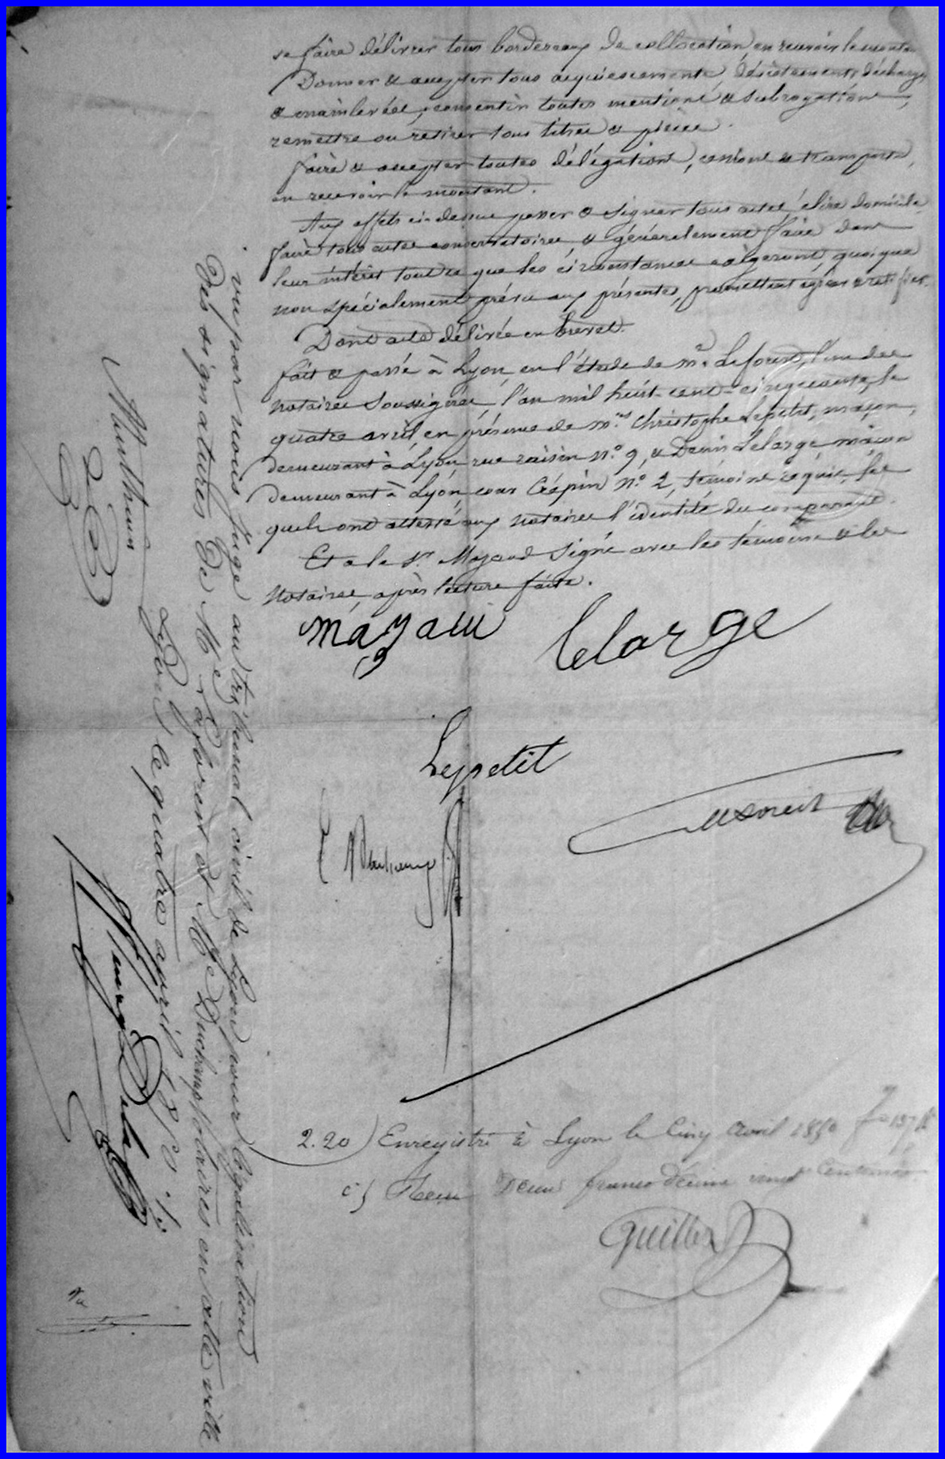 se faire délivrer tous bordereaux de collocation, en recevoir le montant
Donner & accepter tous acquiescements, désistements, décharges
& mainlevées, consentir toutes mentions & subrogations,
remettre ou retirer tous titres & pièces.
faire & accepter toutes délégations, cessions & transports,
en recevoir le montant.
Aux effets ci-dessus passer & signer tous actes, élire domicile
faire tous actes conservatoires & généralement faire dans
leur intérêt tout ce que les circonstances exigeront, quoique
non spécialement prévu aux présentes, promettant
Dont acte délivré en Brevet.
fait & passé à Lyon, en l'étude de Me. Laforest, l'un des
notaires soussignés, l'an mil huit-cent-cinquante, le
quatre avril en présence de mrs Christophe Lepetit, maçon,
demeurant à Lyon rue raisin no. 9, & Denis Lelarge maçon
demeurant à Lyon cour Crépin no. 2, témoins requis, les
quels ont attesté aux notaires l'identité du comparant.
Et a le Sr. Mazaud signé avec les témoins & les
Notaires, après lecture faite.
mazaui Lelarge
Lepetit
Laforest
Duchamp
2.20) Enregistré à Lyon le Cinq Avril 1850
c 5 Reçu Deux francs décime vingt Centimes
Guillin
Vu par nous Juge au tribunal civil de Lyon pour légalisation
des signatures de Me. Laforest et Me Duchamp notaires en cette ville
Lyon le quatre avril 1850.